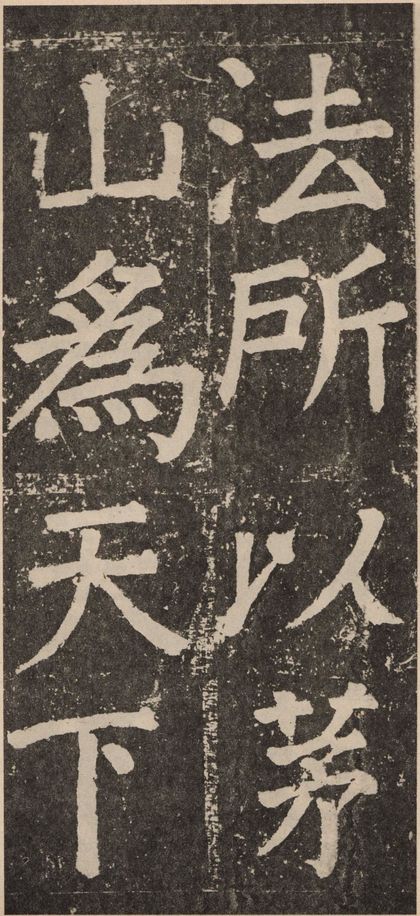 法所以茅
山為天下